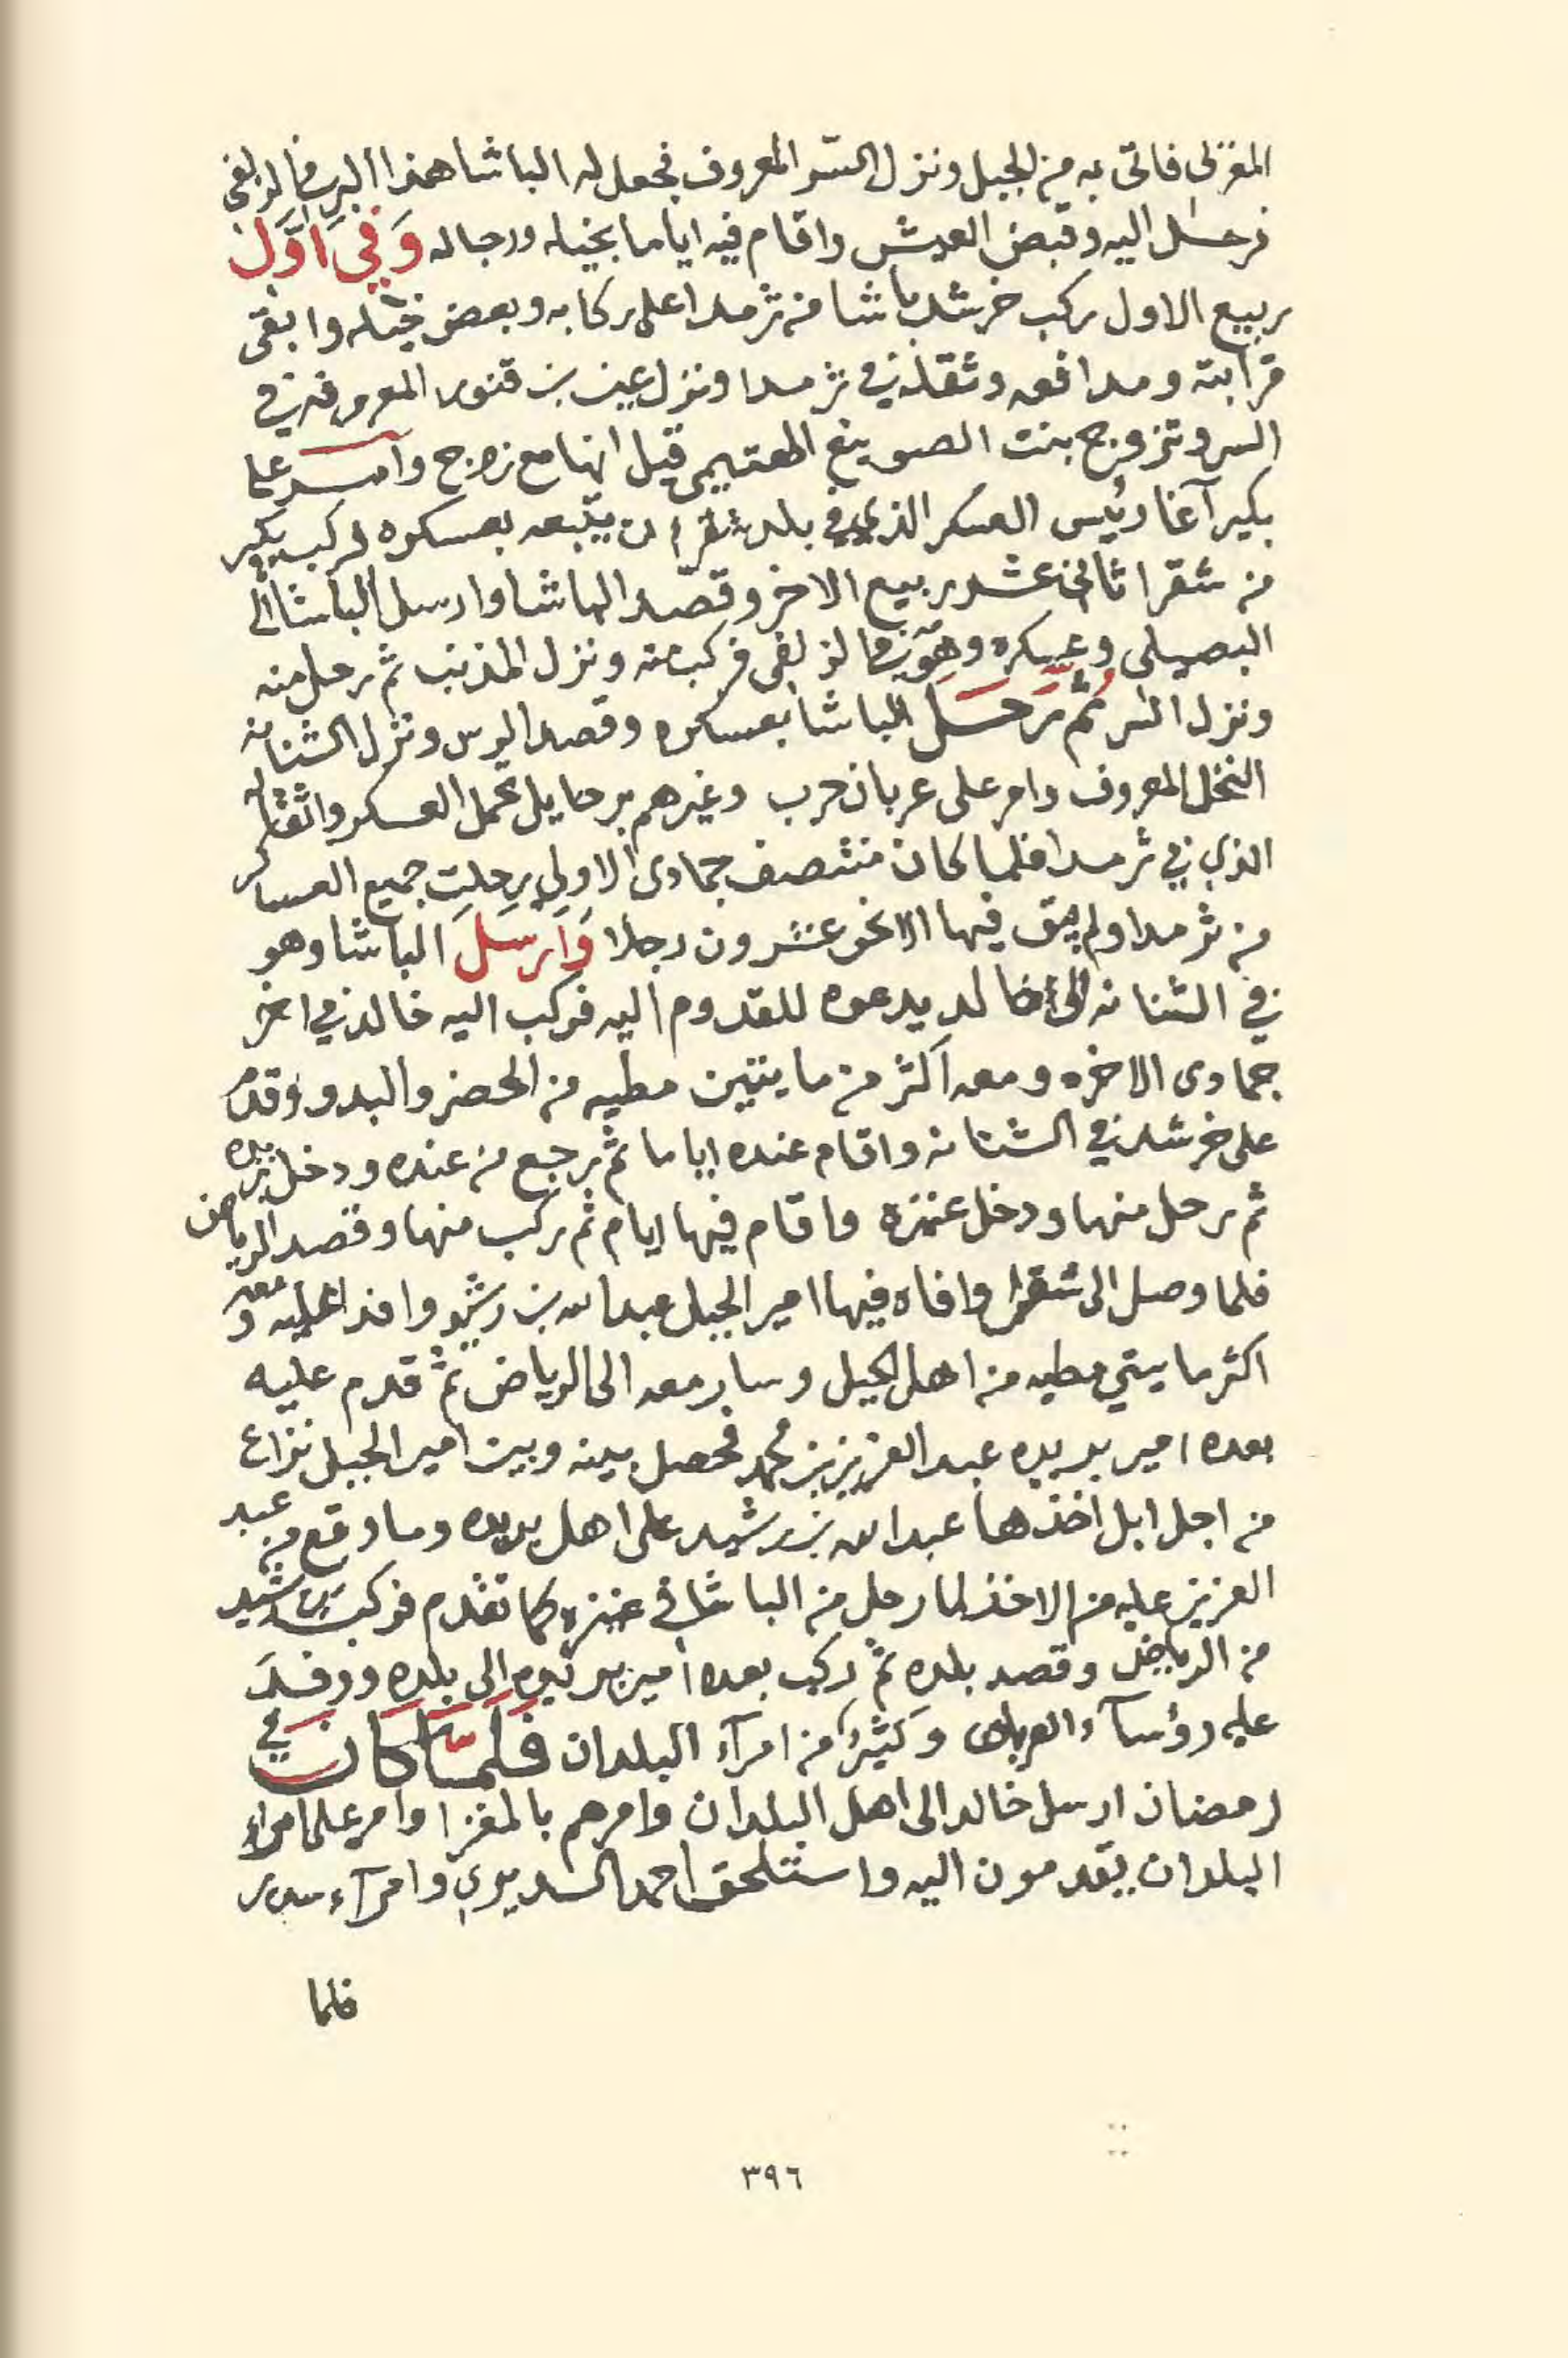 المغزلى فاتى به من الجبل ونزل السر المعروف فجعل له الباشا هذا البر في الزلفى
فرحل اليه وقبض العيش واقام فيه اياما بخيله ورجاله وَفي اَوَّل
ربيع الاول ركب خرشد باشا من ثرمدا على ركابه وبعض خيله وابقى
قرابته ومدافعه وثقله في ثرمدا ونزل عين بن قنور المعروفه في
السر وتزوج بنت الصوينع قيل انها مع زوج وامر على
بكير آغا رئيس العسكر الذي في بلد شقرا ان يتبعه بعسكره فركب بكير
من شقرا ثاني عشر ربيع الاخر وقصد الباشا وارسل الباشا الى
البصيلى وعسكره وهو في الزلفى فركب منه ونزل المذنب ثم رحل منه
ونزل السر ثُمَّ رَحَلَ الباشا بعسكره وقصد الرس ونزل الشنانه
النخل المعروف وامر على عربان حرب وغيرهم برحايل تحمل العسكر واثقاله
الذي في ثرمدا فلما كان منتصف جمادى الاولى رحلت جميع العساكر
من ثرمدا ولم يبق فيها الا نحو عشرون رجلا وَاَرسَلَ الباشا وهو
في الشنانه الى خالد يدعوه للقدوم اليه فركب اليه خالد في اخر
جمادى الاخره ومعه اكثر من مايتين مطيه من الحضر والبدو وقدم
على خرشد في الشنانه واقام عنده اياما ثم رجع من عنده ودخل بريده
ثم رحل منها ودخل عنيزه واقام فيها ايام ثم ركب منها وقصد الرياض
فلما وصل الى شقرا وافاه فيها امير الجبل عبدالله بن رشيد وافدا عليه ومعه
اكثر مايتي مطيه من اهل الجبل وسار معه الى الرياض ثم قدم عليه
بعده امير بريده عبد العزيز بن محمد فحصل بينه وبين امير الجبل نزاع
من اجل ابل اخذها عبدالله بن رشيد على اهل بريده وما وقع من عبد
العزيز عليه من الاخذ لما رحل من الباشا في عنيزه كما تقدم فركب بن رشيد
من الرياض وقصد بلده ثم ركب بعده امير بريده الى بلده ووفد
عليه رؤسآء العربان وكثيرٌ من امرآء البلدان فَلَمَّا كَانَ في
رمضان ارسل خالد الى اهل البلدان وامرهم بالمغزا وامر على امراء
البلدان يقدمون اليه واستلحق احمد السديري وامرآء سدير
فلما
٣٩٦